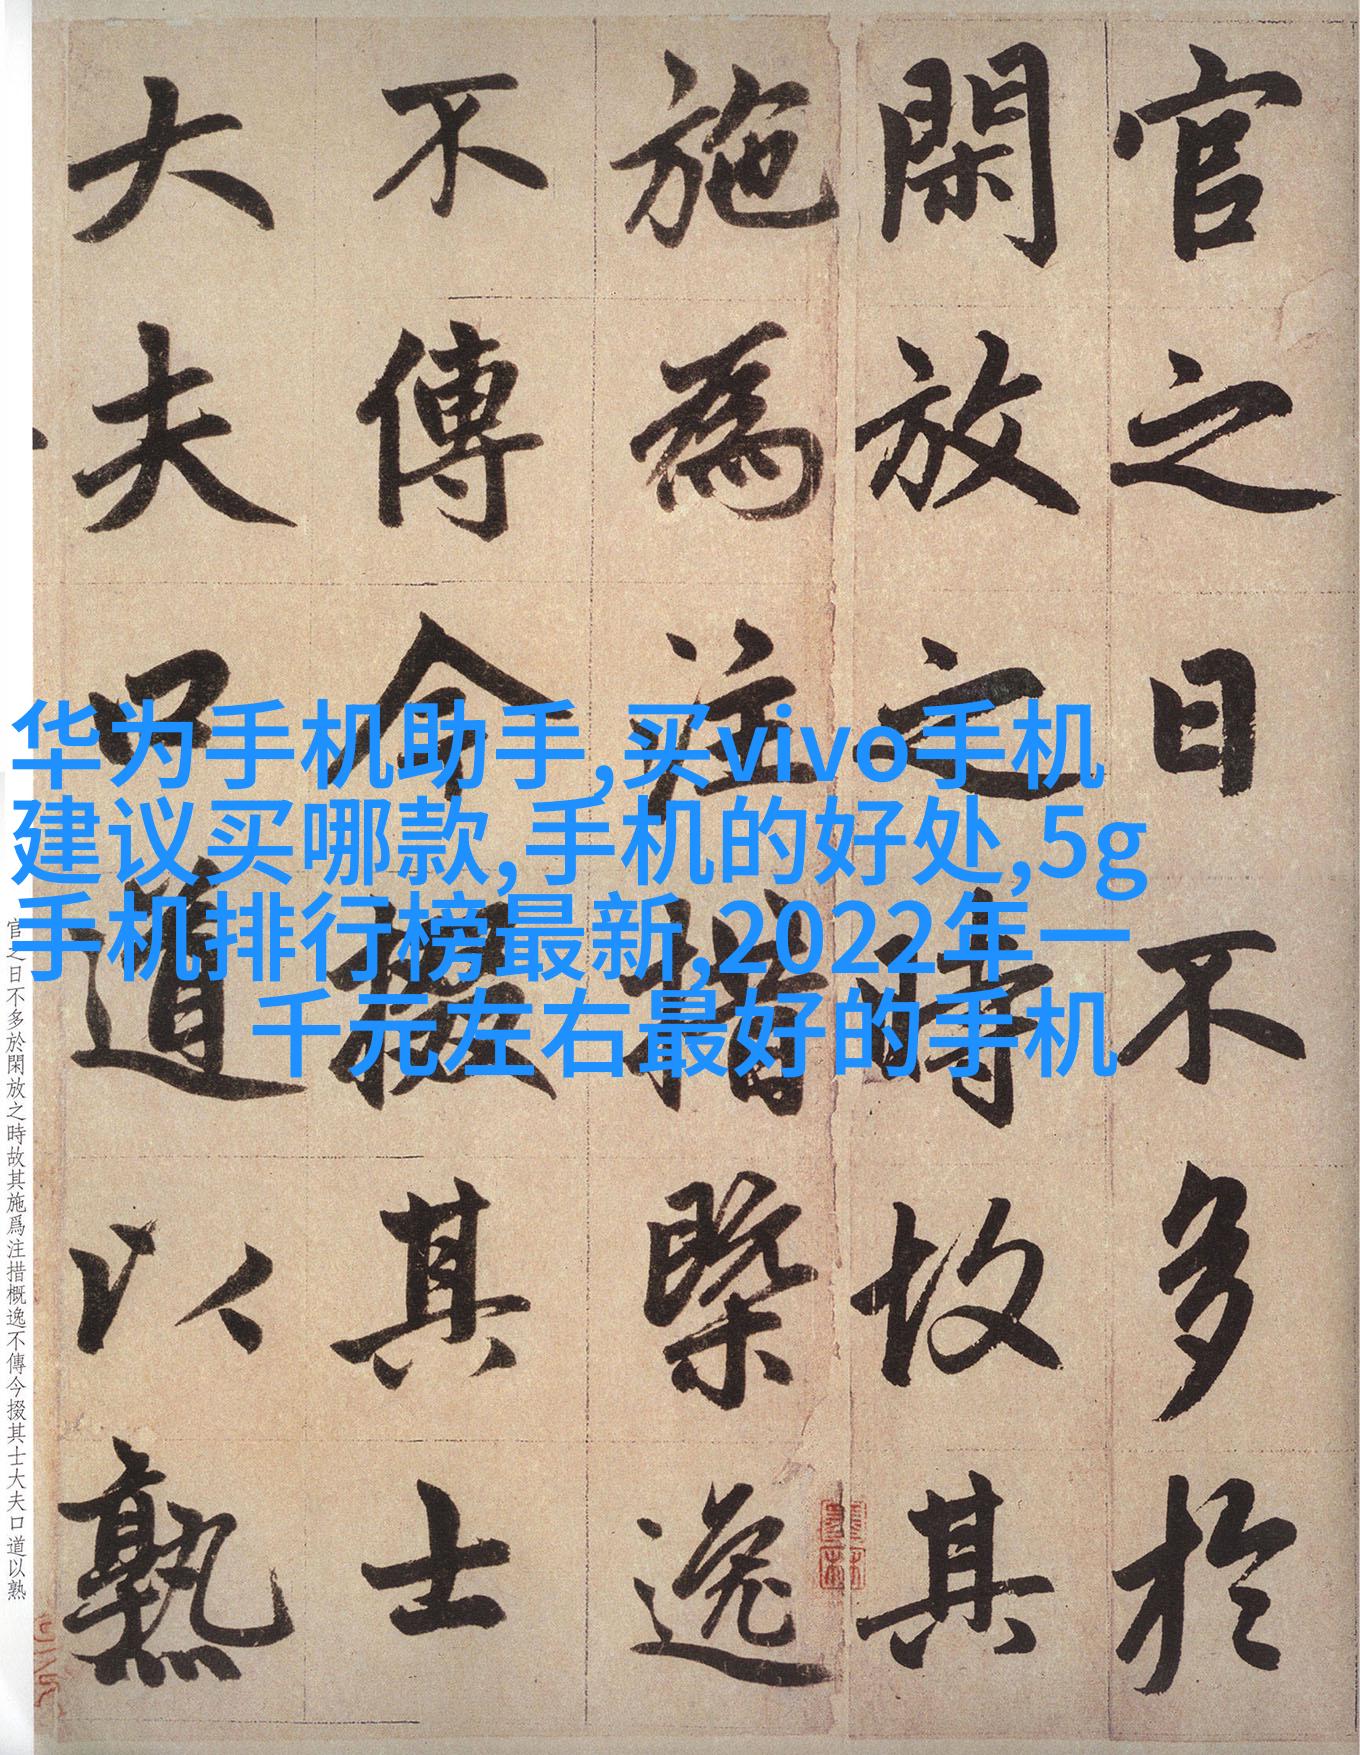 官之日不多於
閑放之時故其
施為注措槩逸
不傳今掇其士
大夫口道以熟
华为手机助手,买vivo手机
建议买哪款,手机的好处,5g
手机排行榜最新,2022年一
千元左右最好的手机
官之日不多於閑放之時故其施爲注措概逸不傳今掇其士大夫口道以熟